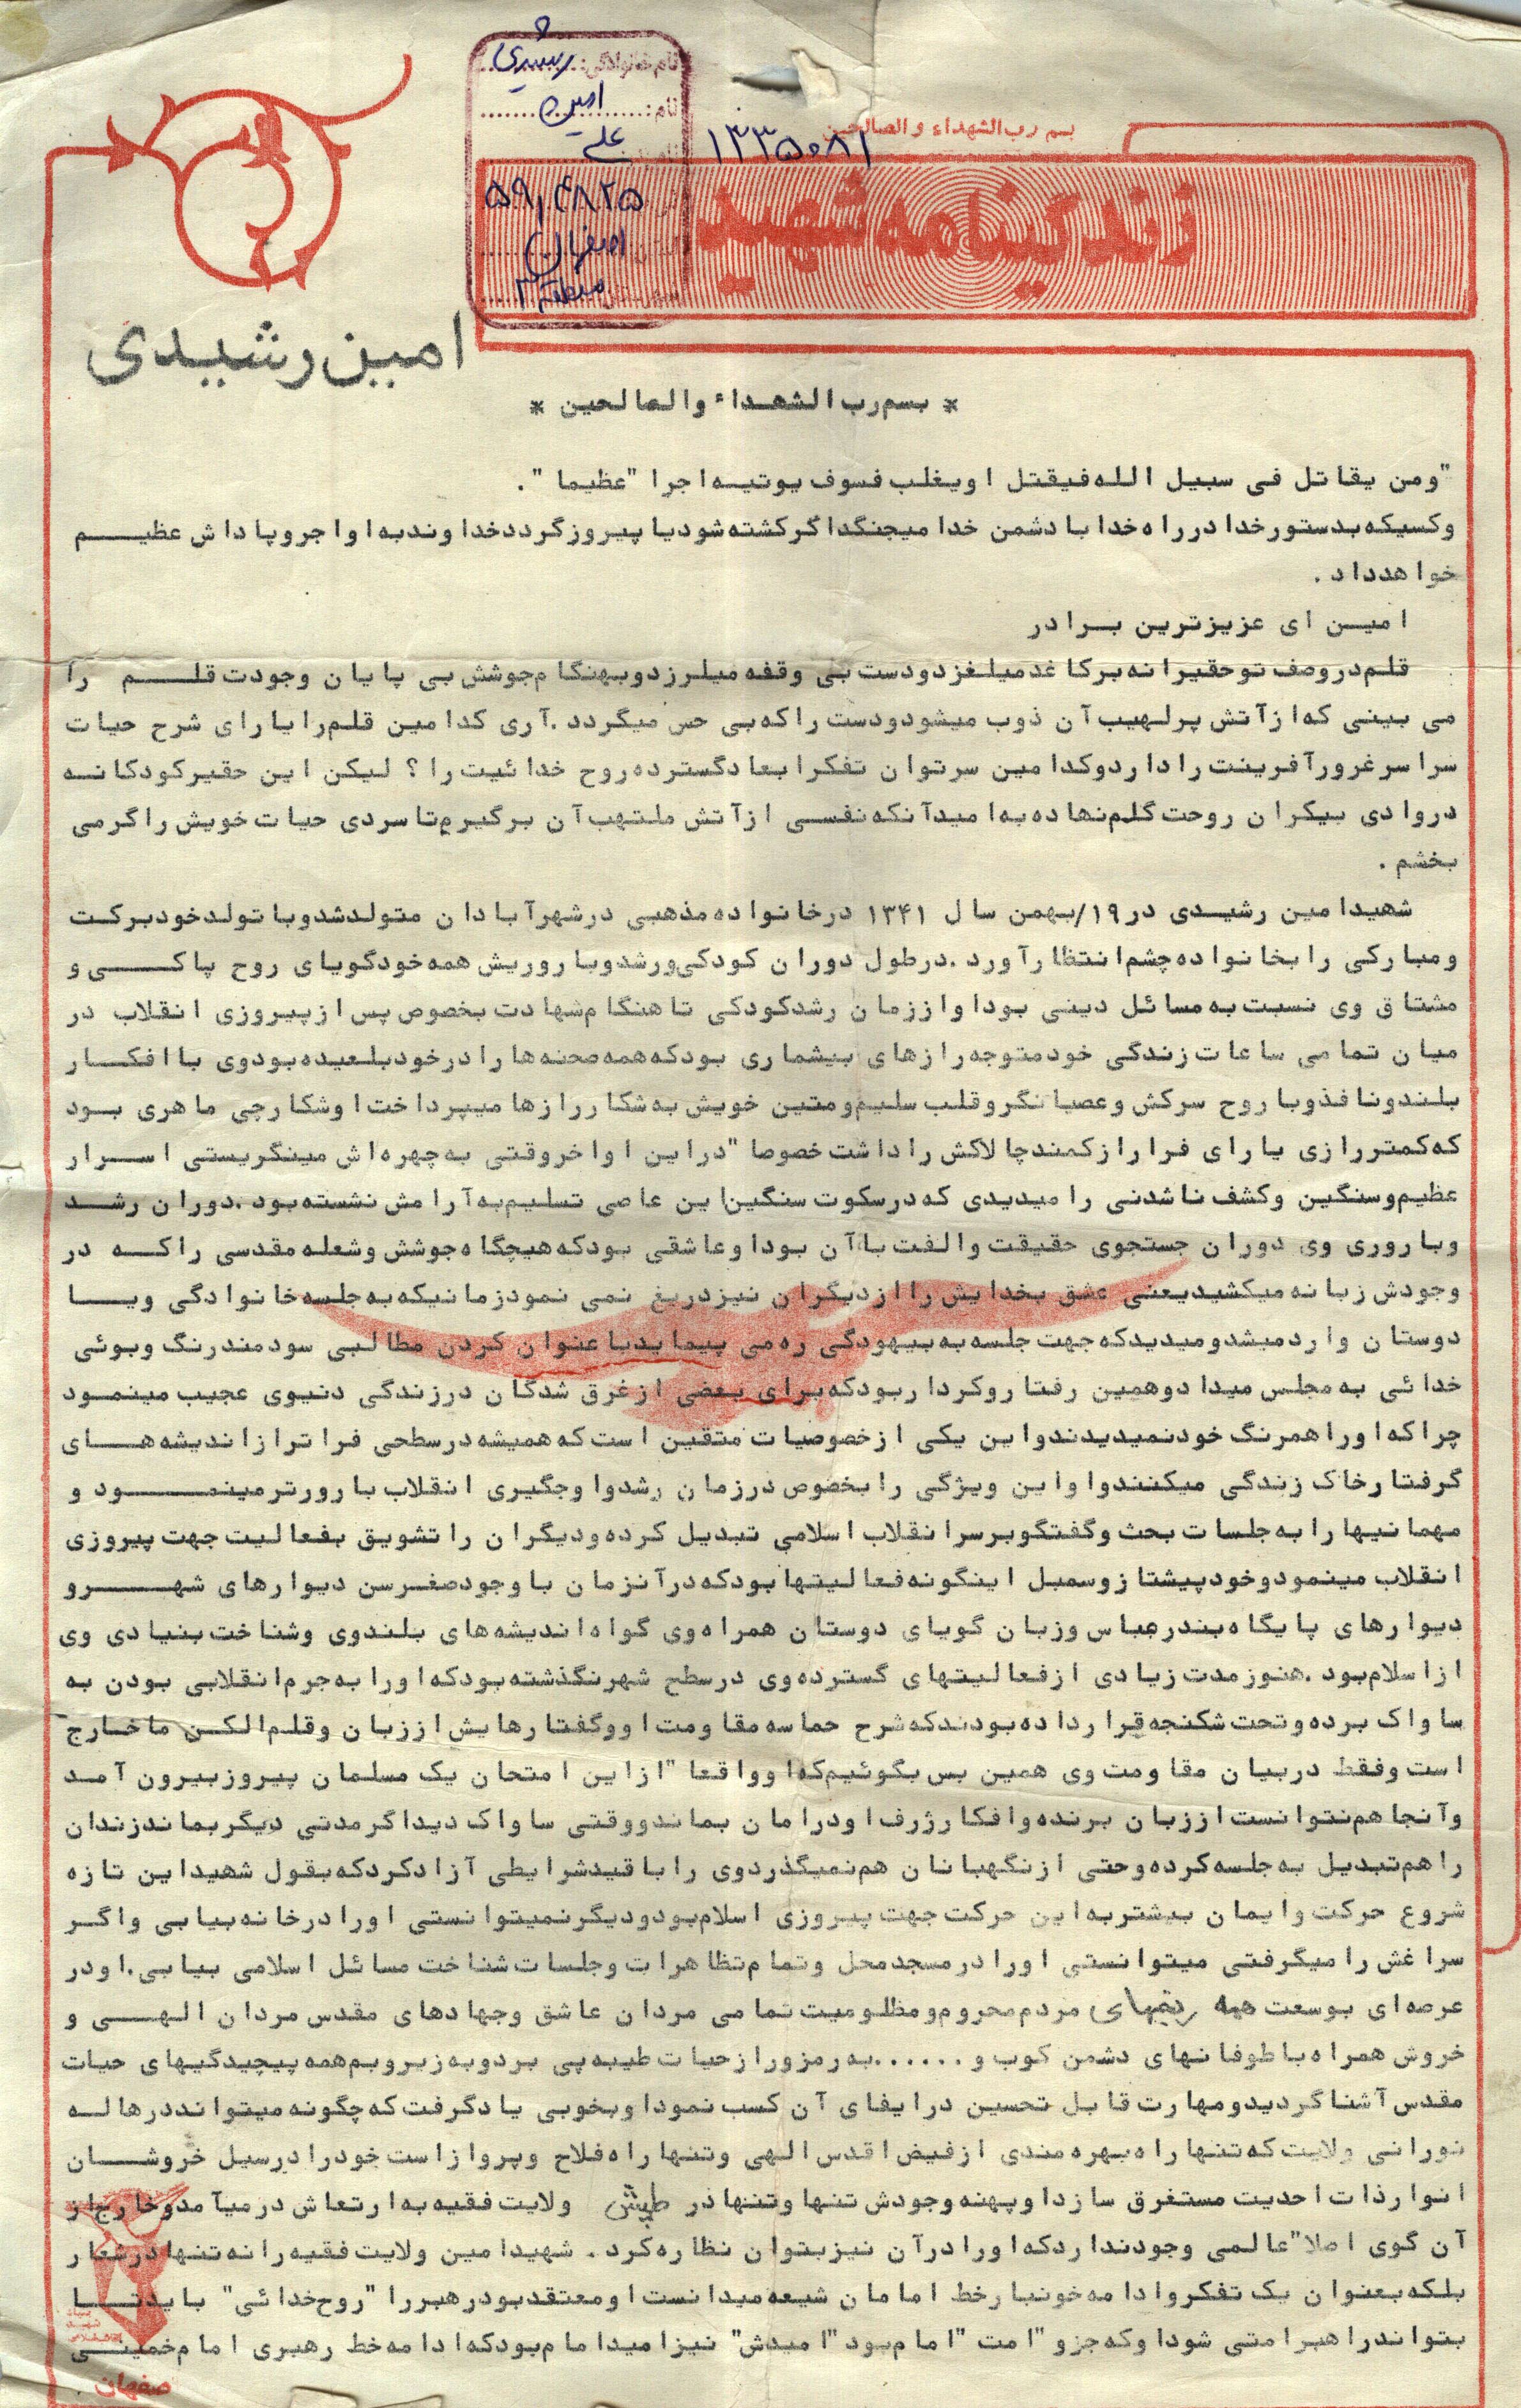 نام خانوادگی: رشیدی
نام: امین
علی
۵۹۱۴۸۲۵
اصفهان
منطقه ۳
۱۳۳۵۰۸۱
بسم رب الشهداء والصالحین
زندگینامه شهید
امین رشیدی
* بسم رب الشهداء والصالحین *
"ومن یقاتل فی سبیل الله فیقتل اویغلب فسوف یوتیه اجرا "عظیما ".
وکسیکه بدستورخدا درراه خدا با دشمن خدا میجنگد اگرکشته شود یا پیروزگردد خداوند به او اجروپاداش عظیم
خواهدداد .
امین ای عزیزترین برادر
قلم دروصف تو حقیرانه برکاغذ میلغزد ودست بی وقفه میلرزد وبهنگام جوشش بی پایان وجودت قلم را
می بینی که ازآتش پرلهیب آن ذوب میشود ودست را که بی حس میگردد .آری کدامین قلم را یارای شرح حیات
سراسرغرورآفرینت را دارد وکدامین سرتوان تفکر ابعاد گسترده روح خدائیت را ؟ لیکن این حقیرکودکانه
دروادی بیکران روحت گلم نهاده به امید آنکه نفسی ازآتش ملتهب آن برگیرم تا سردی حیات خویش را گرمی
بخشم .
شهید امین رشیدی در۱۹/بهمن سال ۱۳۴۱ درخانواده مذهبی درشهرآبادان متولد شد وبا تولد خود برکت
ومبارکی را بخانواده چشم انتظارآورد .درطول دوران کودکی ورشد وباروریش همه خود گویای روح پاکی و
مشتاق وی نسبت به مسائل دینی بود او اززمان رشد کودکی تا هنگام شهادت بخصوص پس ازپیروزی انقلاب در
میان تمامی ساعات زندگی خود متوجه رازهای بیشماری بود که همه صحنه ها را درخود بلعیده بود وی با افکار
بلند ونافذ وبا روح سرکش وعصیانگر وقلب سلیم ومتین خویش به شکار رازها میپرداخت اوشکارچی ماهری بود
که کمتر رازی یارای فرار ازکمند چالاکش را داشت خصوصا "دراین اواخر وقتی به چهره اش مینگریستی اسرار
عظیم وسنگین وکشف ناشدنی را میدیدی که درسکوت سنگین این عاصی تسلیم به آرامش نشسته بود .دوران رشد
وباروری وی دوران جستجوی حقیقت والفت با آن بود اوعاشقی بود که هیچگاه جوشش وشعله مقدسی را که در
وجودش زبانه میکشید یعنی عشق بخدایش را ازدیگران نیز دریغ نمی نمود زمانیکه به جلسه خانوادگی ویا
دوستان وارد میشد ومیدید که جهت جلسه به بیهودگی ره می پیماید با عنوان کردن مطالبی سودمند رنگ وبوئی
خدائی به مجلس میداد وهمین رفتار وکردار بود که برای بعضی ازغرق شدگان درزندگی دنیوی عجیب مینمود
چراکه اورا همرنگ خود نمیدیدند واین یکی ازخصوصیات متقین است که همیشه درسطحی فراتر ازاندیشه های
گرفتار خاک زندگی میکنند و او این ویژگی را بخصوص درزمان رشد واوجگیری انقلاب بارورتر مینمود و
مهمانیها را به جلسات بحث وگفتگو برسر انقلاب اسلامی تبدیل کرده ودیگران را تشویق بفعالیت جهت پیروزی
انقلاب مینمود وخود پیشتاز وسمبل اینگونه فعالیتها بود که درآنزمان با وجود صغرسن دیوارهای شهر و
دیوارهای پایگاه بندرعباس وزبان گویای دوستان همراه وی گواه اندیشه های بلند وی وشناخت بنیادی وی
ازاسلام بود .هنوز مدت زیادی ازفعالیتهای گسترده وی درسطح شهر نگذشته بود که اورا به جرم انقلابی بودن به
ساواک برده وتحت شکنجه قرارداده بودند که شرح حماسه مقاومت او وگفتارهایش اززبان وقلم الکن ما خارج
است وفقط دربیان مقاومت وی همین بس بگوئیم که او واقعا "ازاین امتحان یک مسلمان پیروز بیرون آمد
وآنجا هم نتوانست اززبان برنده وافکار ژرف او درامان بماند ووقتی ساواک دید اگر مدتی دیگر بماند زندان
را هم تبدیل به جلسه کرده وحتی ازنگهبانان هم نمیگذرد وی را با قید شرایطی آزاد کرد که بقول شهید این تازه
شروع حرکت وایمان بیشتر به این حرکت جهت پیروزی اسلام بود ودیگر نمیتوانستی اورا درخانه بیابی واگر
سراغش را میگرفتی میتوانستی اورا درمسجد محل وتمام تظاهرات وجلسات شناخت مسائل اسلامی بیابی .اودر
عرصه ای بوسعت همه رنجهای مردم محروم ومظلومیت تمامی مردان عاشق وجهادهای مقدس مردان الهی و
خروش همراه با طوفانهای دشمن کوب و ......به رمز وراز حیات طیبه پی برد وبه زیر وبم همه پیچیدگیهای حیات
مقدس آشنا گردید ومهارت قابل تحسین درایفای آن کسب نمود او بخوبی یاد گرفت که چگونه میتواند درهاله
نورانی ولایت که تنها راه بهره مندی ازفیض اقدس الهی وتنها راه فلاح وپرواز است خود را درسیل خروشان
انوار ذات احدیت مستغرق سازد او پهنه وجودش تنها وتنها در طپش ولایت فقیه به ارتعاش درمیآمد وخارج از
آن گوی اصلا"عالمی وجود ندارد که اورا درآن نیز بتوان نظاره کرد . شهید امین ولایت فقیه را نه تنها درشعار
بلکه بعنوان یک تفکر وادامه خونبار خط امامان شیعه میدانست او معتقد بود رهبر را "روح خدائی" باید تا
بتواند راهبر امتی شود او که جزو "امت "امام بود "امیدش" نیز امید امام بود که ادامه خط رهبری امام خمینی
صفهان